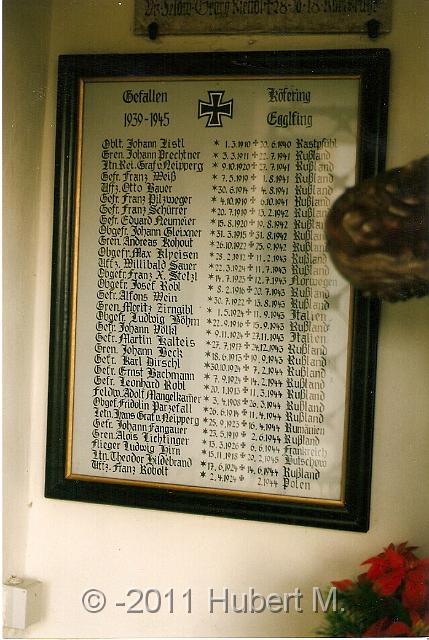 Gefallen Köfering
1939-1945 Egglfing
Oblt. Johann Listl * 1.3.1910 + 20.6.1940 Rastpfuhl
Gren. Johann Brechtner * 3.3.1911 + 22.7.1941 Rußland
Ltn. Rei. Graf v. Neipperg * 9.10.1920 + 27.7.1941 Rußland
Gefr. Franz Weiß * 7.5.1919 + 1.8.1941 Rußland
Uffz. Otto Bauer * 30.6.1914 + 4.8.1941 Rußland
Gefr. Franz Pilzweger * 4.10.1919 + 6.10.1941 Rußland
Gefr. Franz Schürrer * 20.7.1919 + 13.2.1942 Rußland
Gefr. Eduard Neumeier * 15.8.1920 + 19.8.1942 Rußland
Obgefr. Johann Gleixner * 31.3.1915 + 31.8.1942 Rußland
Gren. Andreas Kohout * 26.10.1922 + 25.9.1942 Rußland
Obgefr. Max Kleisen * 28.2.1912 + 11.2.1943 Rußland
Uffz. Willibald Sauer * 22.3.1924 + 11.7.1943 Rußland
Obgefr. Franz X. Stetzl * 14.7.1923 + 12.7.1943 Norwegen
Obgefr. Josef Röbl * 8.2.1916 + 20.7.1943 Rußland
Gefr. Alfons Wein * 30.7.1922 + 13.8.1943 Rußland
Gren. Moritz Zirngibl * 1.5.1924 + 11.9.1943 Italien
Obgefr. Ludwig Böhm * 22.9.1916 + 15.9.1943 Rußland
Gefr. Johann Völkl * 9.11.1924 + 27.11.1943 Italien
Gefr. Martin Kalteis * 27.7.1917 + 24.12.1943 Rußland
Gren. Johann Beck * 18.6.1913 + 19.9.1943 Rußland
Gefr. Karl Dirschl * 30.10.1924 + 7.2.1944 Rußland
Gefr. Ernst Bachmann * 7.9.1924 + 14.2.1944 Rußland
Gefr. Leonhard Röbl * 20.1.1913 + 11.3.1944 Rußland
Feldw. Adolf Mangelkamer * 3.4.1908 + 26.3.1944 Rußland
Obgfr. Fridolin Parzefall * 26.6.1914 + 11.4.1944 Rußland
Letn. Hans Graf v. Neipperg * 25.9.1923 + 16.4.1944 Rumänien
Gefr. Johann Fangauer * 23.5.1919 + 2.6.1944 Rußland
Gren. Alois Lichtinger * 15.3.1926 + 6.6.1944 Frankreich
Flieger Ludwig Hirn * 15.11.1918 + 20.2.1945 Butschow
Ltn. Theodor Hildebrand * 17.6.1924 + 14.6.1944 Rußland
Uffz. Franz Robolt * 2.4.1924 + 2.1944 Polen
© -2011 Hubert M.